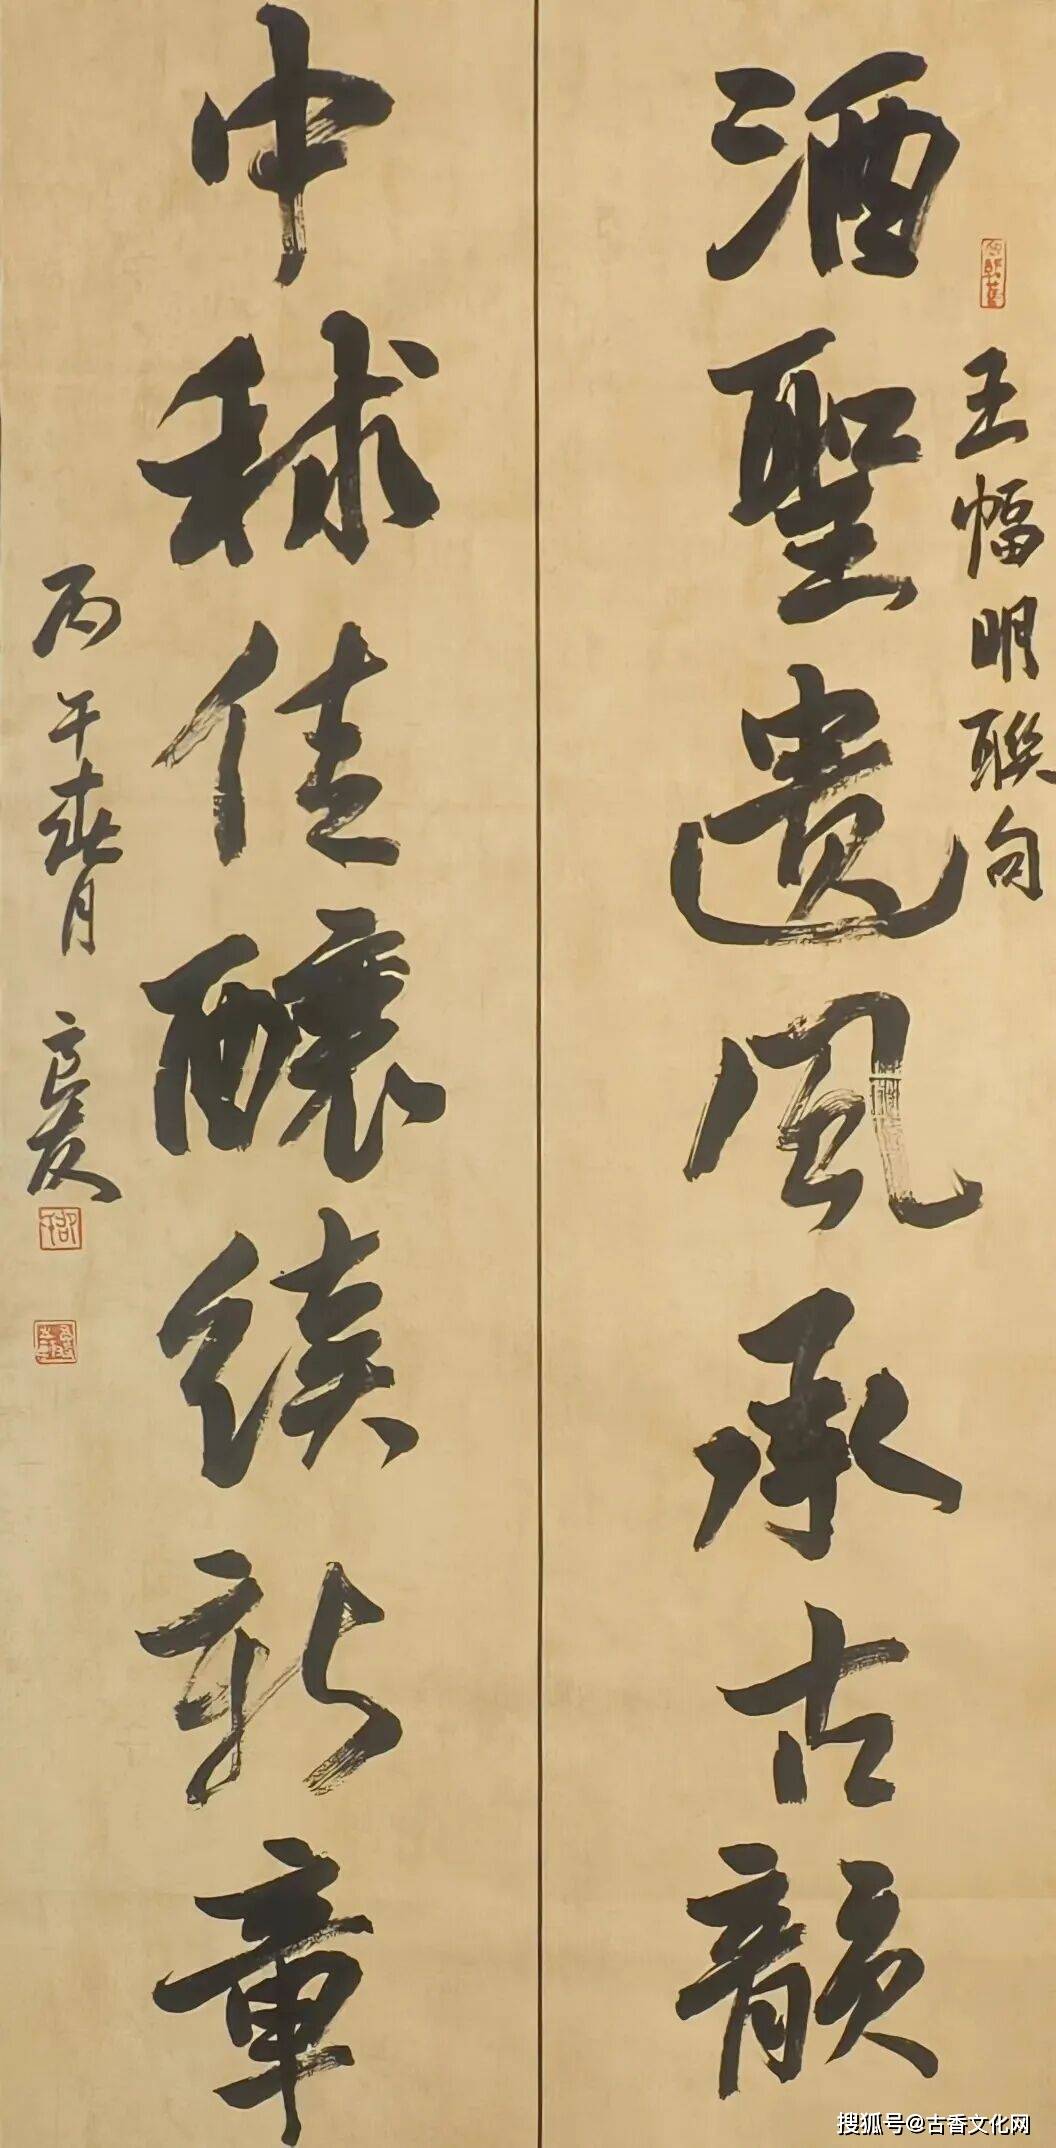 王幅明聯句
酒聖遺風承古韻
中秫佳釀續新章
丙午春月
搜狐号@古香文化网